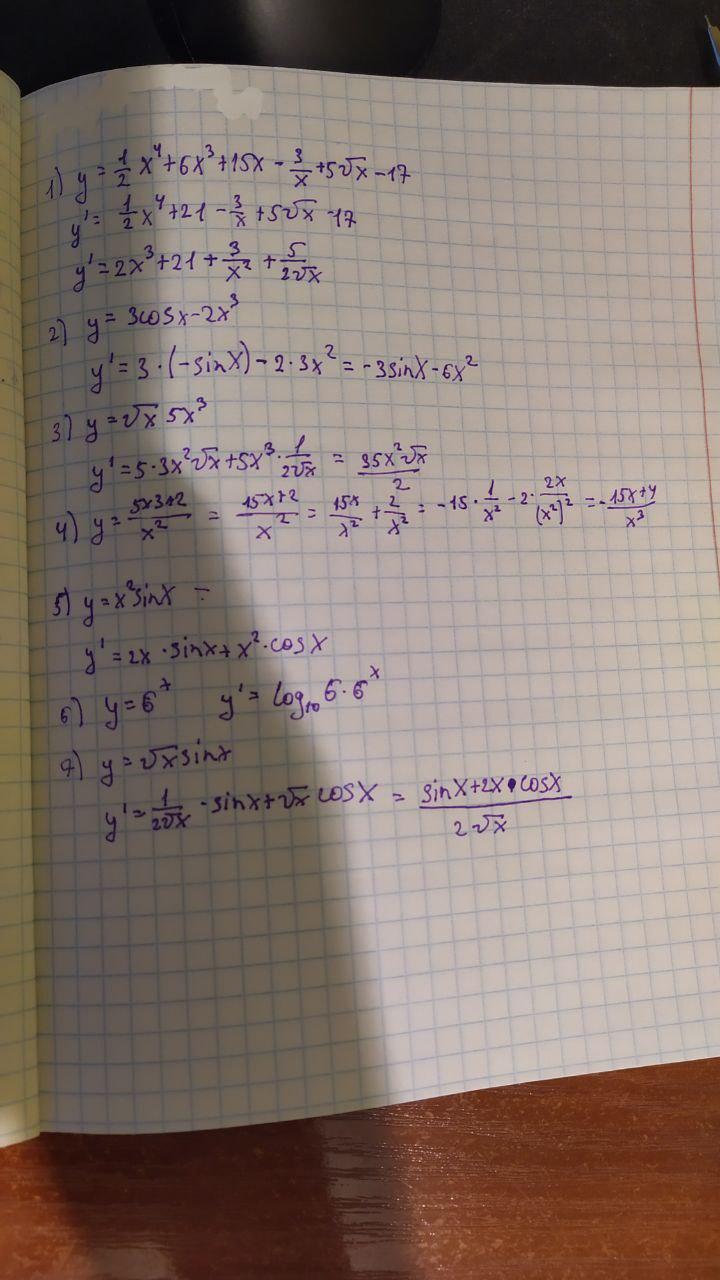 1) y = 1/2 x⁴ + 6x³ + 15x - 3/x + 5√x - 17
y' = 1/2 x⁴ + 21 - 3/x + 5√x - 17
y' = 2x³ + 21 + 3/x² + 5/(2√x)
2) y = 3cosx - 2x³
y' = 3 · (-sinx) - 2 · 3x² = -3sinx - 6x²
3) y = √x 5x³
y' = 5 · 3x² √x + 5x³ · 1/(2√x) = 35x²√x/2
4) y = (5x3+2)/x² = (15x+2)/x² = 15x/x² + 2/x² = -15 · 1/x² - 2 · 2x/(x²)² = -(15x+4)/x³
5) y = x² sinx =
y' = 2x · sinx + x² · cosx
6) y = 6ˣ y' = log₁₀ 6 · 6ˣ
7) y = √x sinx
y' = 1/(2√x) · sinx + √x cosx = (sinx + 2x · cosx)/(2√x)